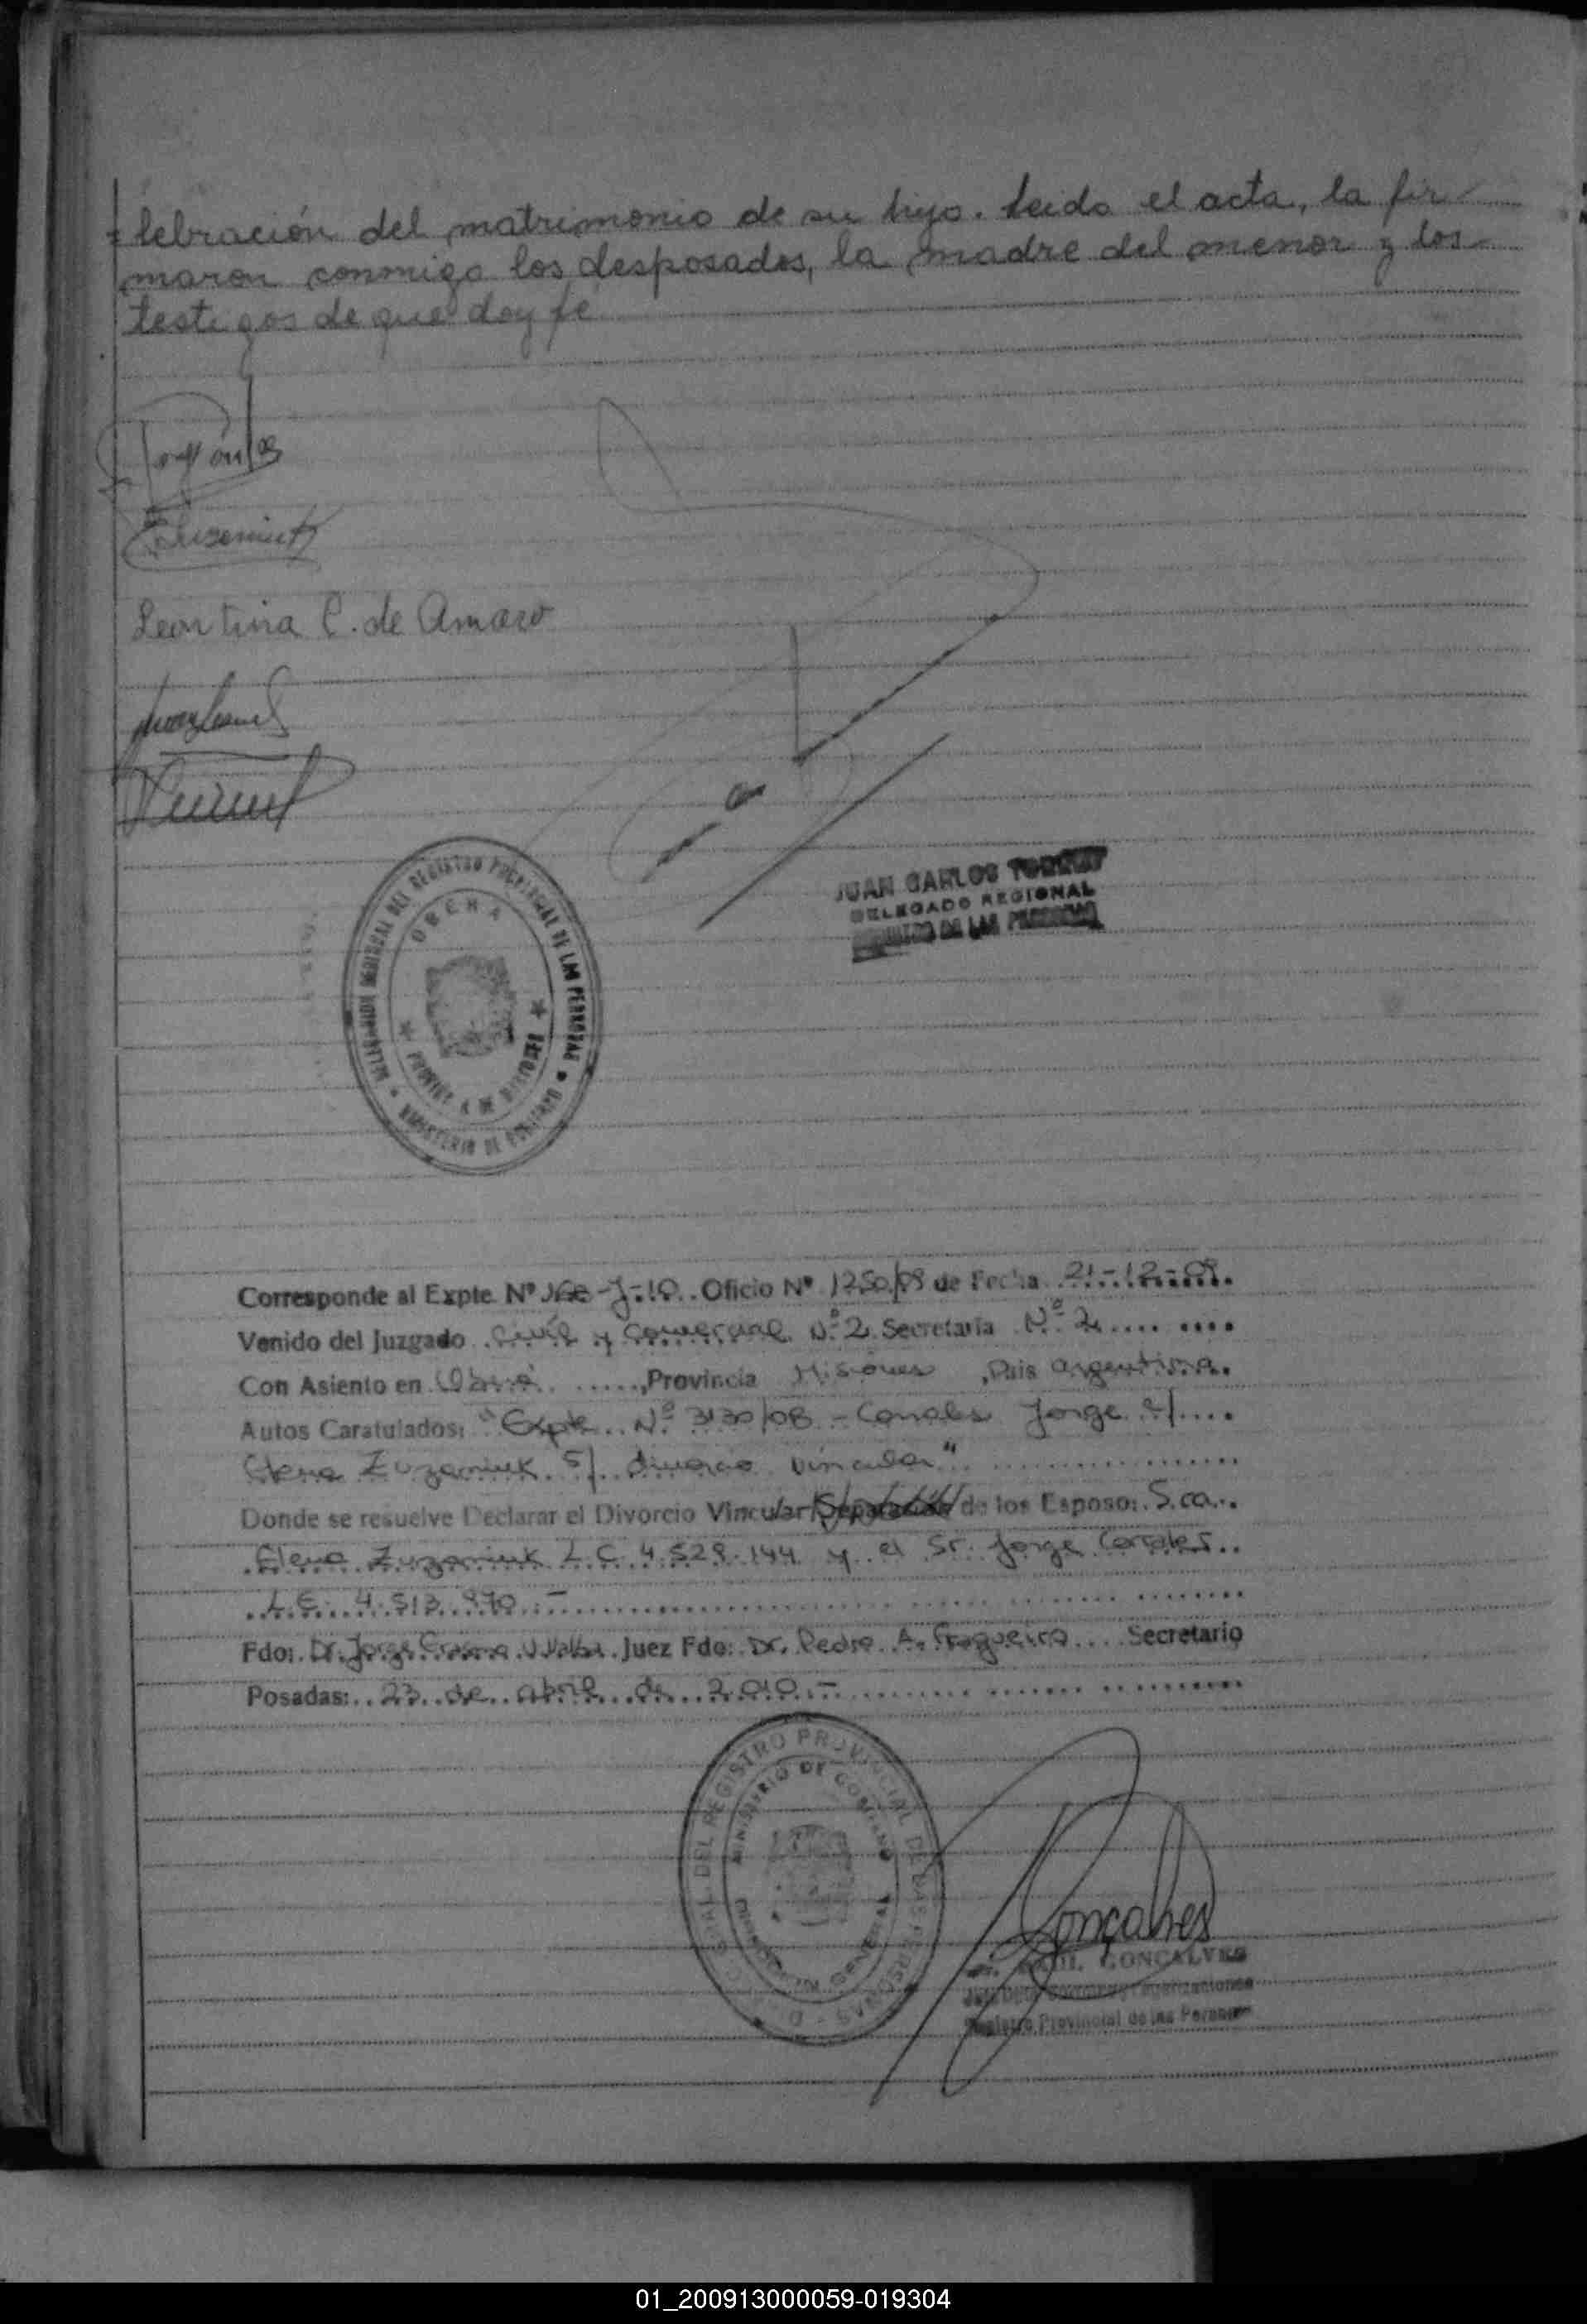 lebración del matrimonio de su hijo. Leido el acta, la fir-
maron conmigo los desposados, la madre del menor y los
testigos de que doy fe
Leontina C. de Amaro
JUAN CARLOS
DELEGADO REGIONAL
REGISTRO DE LAS PERSONAS
DELEGACION REGIONAL DEL REGISTRO PROVINCIAL DE LAS PERSONAS
OBERA
PROVINCIA DE MISIONES
MINISTERIO DE GOBIERNO
Corresponde al Expte Nº -J-10 Oficio Nº 1250/09 de Fecha 21-12-09
Venido del Juzgado Civil y Comercial Nº 2 Secretaria Nº 2
Con Asiento en Oberá, Provincia Misiones, Pais Argentina.
Autos Caratulados: "Expte. Nº 3130/08 - Corrales Jorge c/
Elena Zuzaniuk s/ divorcio vincular"
Donde se resuelve Declarar el Divorcio Vincular/Separación de los Esposo: S.ra.
Elena Zuzaniuk L.C. 4.529.144 y el Sr. Jorge Corrales
L.E. 4.513.970.-
Fdo: Dr. Jorge Erasmo Juez Fdo: Dr. Pedro A. Fragueiro Secretario
Posadas: 23 de abril de 2.010.-
GRAL. DEL REGISTRO PROVINCIAL DE LAS PERSONAS
MINISTERIO DE GOBIERNO
Gonçalves
RAUL GONCALVES
Registro Provincial de las Personas
01_200913000059-019304